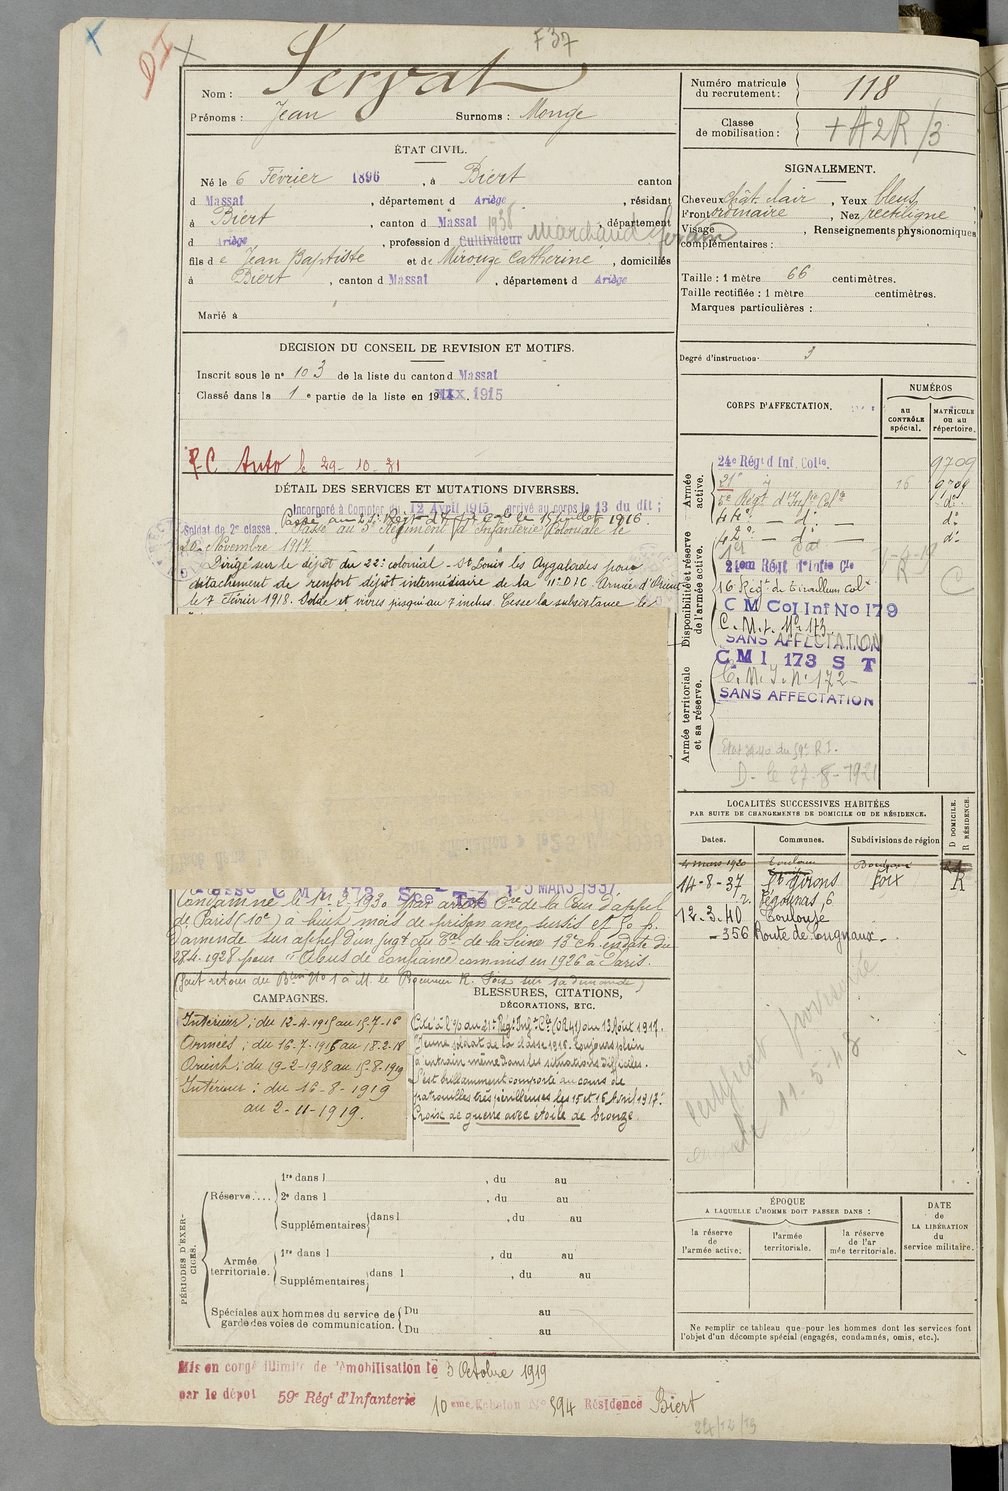 F37
DI
Nom : Servat
Prénoms : Jean Surnoms : Mouge
ÉTAT CIVIL.
Né le 6 Février 1896, à Biert canton
d Massat, département d Ariège, résidant
à Biert, canton d Massat 1938, département
d Ariège, profession d Cultivateur Marchand forain
fils d e Jean Baptiste et de Mirouze Catherine, domiciliés
à Biert, canton d Massat, département d Ariège
Marié à
DÉCISION DU CONSEIL DE REVISION ET MOTIFS.
Inscrit sous le nº 103 de la liste du canton d Massat
Classé dans la 1 e partie de la liste en 19 1915
P.C. Auto le 29-10-31
DÉTAIL DES SERVICES ET MUTATIONS DIVERSES.
Incorporé à Compter du 12 Avril 1915, arrivé au corps le 13 du dit ;
Soldat de 2e classe. Passé au 21e Régt d'Inf. Cole le 15 juillet 1916.
Passé au 5e Régiment d'Infanterie Coloniale le
20 Novembre 1917.
Dirigé sur le dépôt du 22e colonial - St Louis les Aygalades pour
détachement de renfort dépôt intermédiaire de la 11e D.I.C. Armée d'Orient
le 7 Février 1918. Solde et vivres jusqu'au 7 inclus. Cesse la subsistance le
Passé C M I 173 Sce Tre 15 MARS 1937
Condamné le 1er 2-1930 par arrêt Cre de la Cour d'appel
de Paris (10e) à huit mois de prison avec sursis et 50 f.
d'amende sur appel d'un jugt du Bal de la Seine 13e ch. en date du
28.4.1928 pour "Abus de confiance" commis en 1926 à Paris.
(faut retour du Bun No 1 à M. le Procureur R. Foix sur sa demande)
CAMPAGNES.
Intérieur ; du 12-4-1915 au 15-7-16
Armées ; du 16-7-1916 au 18-2-18
Orient ; du 19-2-1918 au 15-8-1919
Intérieur : du 16-8-1919
au 2-11-1919.
BLESSURES, CITATIONS,
DÉCORATIONS, ETC.
Cité à l'O du 21e Régt Inf. Cle (OR 41) du 12 Août 1917.
"Jeune soldat de la classe 1916. toujours plein
d'entrain même dans les situations difficiles.
S'est brillamment comporté au cours de
patrouilles très périlleuses les 15 et 16 Avril 1917."
Croix de guerre avec étoile de bronze.
PÉRIODES D'EXERCICES.
Réserve....
1re dans l , du au
2e dans l , du au
Supplémentaires dans l , du au
Armée territoriale.
1re dans l , du au
Supplémentaires dans l , du au
Spéciales aux hommes du service de garde des voies de communication.
Du au
Du au
Mis en congé illimité de démobilisation le 3 Octobre 1919
par le dépôt 59e Régt d'Infanterie
10 eme Echelon No 594 Résidence Biert
Numéro matricule du recrutement : 118
Classe de mobilisation : + A2R/3
SIGNALEMENT.
Cheveux chât. clair, Yeux bleus
Front ordinaire, Nez rectiligne
Visage , Renseignements physionomiques
complémentaires :
Taille : 1 mètre 66 centimètres.
Taille rectifiée : 1 mètre centimètres.
Marques particulières :
Degré d'instruction. 3
CORPS D'AFFECTATION.
NUMÉROS
au CONTRÔLE spécial.
MATRICULE ou au répertoire.
Armée active.
24e Régt d Inf. Colle. 9709
21e 16 9709
5e Régt d'Infie Cle do
do
do
Disponibilité et réserve de l'armée active.
21em Régt d'Infie Cle
16 Régt de tirailleurs colx
C M Col Inf No 179
C. M. I. No 173
SANS AFFECTATION
C M I 173 S T
C. M. I. No 172
SANS AFFECTATION
Armée territoriale et sa réserve.
D. le 27-8-1921
LOCALITÉS SUCCESSIVES HABITÉES
PAR SUITE DE CHANGEMENTS DE DOMICILE OU DE RÉSIDENCE.
Dates. Communes. Subdivisions de région
D DOMICILE. R RÉSIDENCE.
4 mars 1920 Toulouse
14-8-37 St Girons Foix R
12.3.40 Toulouse
356 Route de Lugnaux
11.5.43
ÉPOQUE
A LAQUELLE L'HOMME DOIT PASSER DANS :
la réserve de l'armée active.
l'armée territoriale.
la réserve de l'ar mée territoriale.
DATE de LA LIBÉRATION du service militaire.
Ne remplir ce tableau que pour les hommes dont les services font
l'objet d'un décompte spécial (engagés, condamnés, omis, etc.).